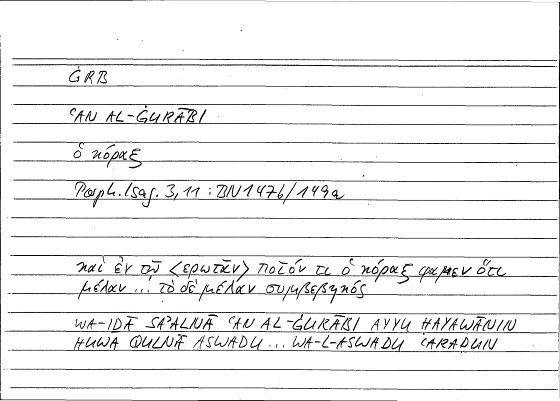 ĠRB
ʿAN AL-ĠURĀBI
ὁ κόραξ
Porph. Isag. 3,11 : BN 1476/149a
καὶ ἐν τῷ <ἐρωτᾶν> ποῖόν τι ὁ κόραξ φαμεν ὅτι
μέλαν ... τὸ δὲ μέλαν συμβεβηκός
WA-IḎĀ SAʾALNĀ ʿAN AL-ĠURĀBI AYYU ḤAYAWĀNIN
HUWA QULNĀ ASWADU ... WA-L-ASWADU ʿARAḌUN